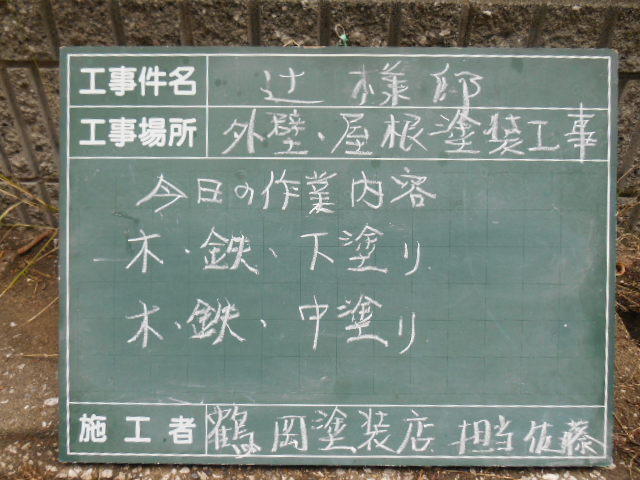 工事件名 辻様邸
工事場所 外壁、屋根塗装工事
今日の作業内容
木、鉄、下塗り
木、鉄、中塗り
施工者 鶴岡塗装店 担当佐藤